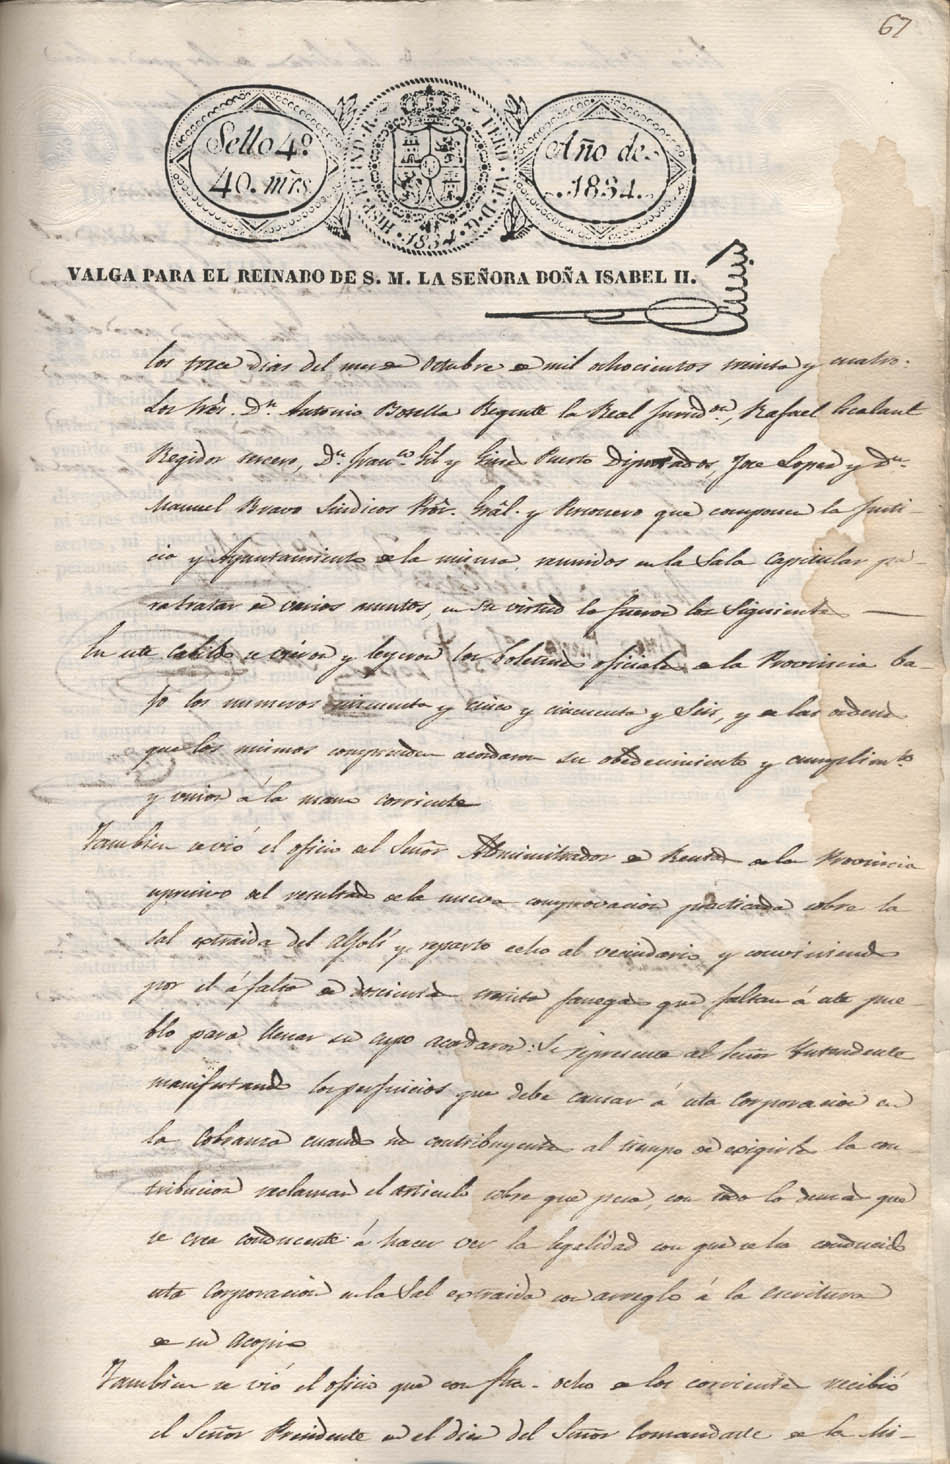 67
Sello 4º
40. mrs
HISP. ET IND. R.
FERD. VII. D. G.
1834.
Año de
1834.
VALGA PARA EL REINADO DE S. M. LA SEÑORA DOÑA ISABEL II.
los trece dias del mes de Octubre de mil ochocientos treinta y cuatro.
Los Sres. Dn. Antonio Botella Regente la Real Jurisdon, Rafael
Regidor tercero, Dn. Franco. Gil y Ginés Puerto Diputados, Jose Lopez y Dn.
Manuel Bravo Sindicos Pror. Gral. y Personero que componen la Justi-
cia y Ayuntamiento de la misma, reunidos en la Sala Capitular pa-
ra tratar de varios asuntos, en su virtud lo fueron los Siguientes
En este Cabildo se vieron y leyeron los boletines oficiales de la Provincia ba-
jo los numeros cincuenta y cinco y cincuenta y Seis, y de las ordenes
que los mismos comprenden acordaron su obedecimiento y cumplimto.
y union á la mano corriente
Tambien se vió el oficio del Señor Administrador de Rentas de la Provincia
espresivo del resultado de la nueva comprovacion practicada sobre la
sal extraida del Alfolí y reparto echo al vecindario y conviniendo
por él á falta de doscientas treinta fanegas que faltan á este pue-
blo para llenar su cupo acordaron: Se represente al Señor Yntendente
manifestando los perjuicios que debe causar á esta Corporacion en
la Cobranza cuando los contribuyentes al tiempo de exigirles la con-
tribucion reclaman el articulo sobre que pesa, con todo lo demas que
se crea conducente á hacer ver la legalidad con que se ha conducido
esta Corporacion en la Sal extraida con arreglo á la escritura
de su Acopio
Tambien se vió el oficio que con fha. ocho de los corrientes recibió
el Señor Presidente en el dia del Señor Comandante de la Mi-